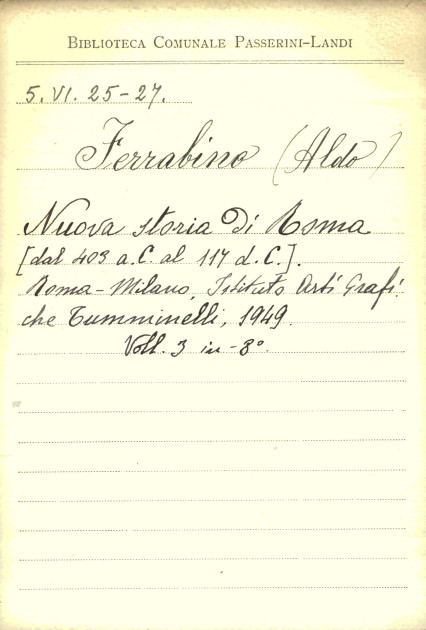 BIBLIOTECA COMUNALE PASSERINI-LANDI
5. VI. 25-27.
Ferrabino (Aldo)
Nuova storia di Roma
[dal 403 a.C. al 117 d.C.].
Roma-Milano, Istituto Arti Grafi
che Tumminelli, 1949.
Voll. 3 in-8°.